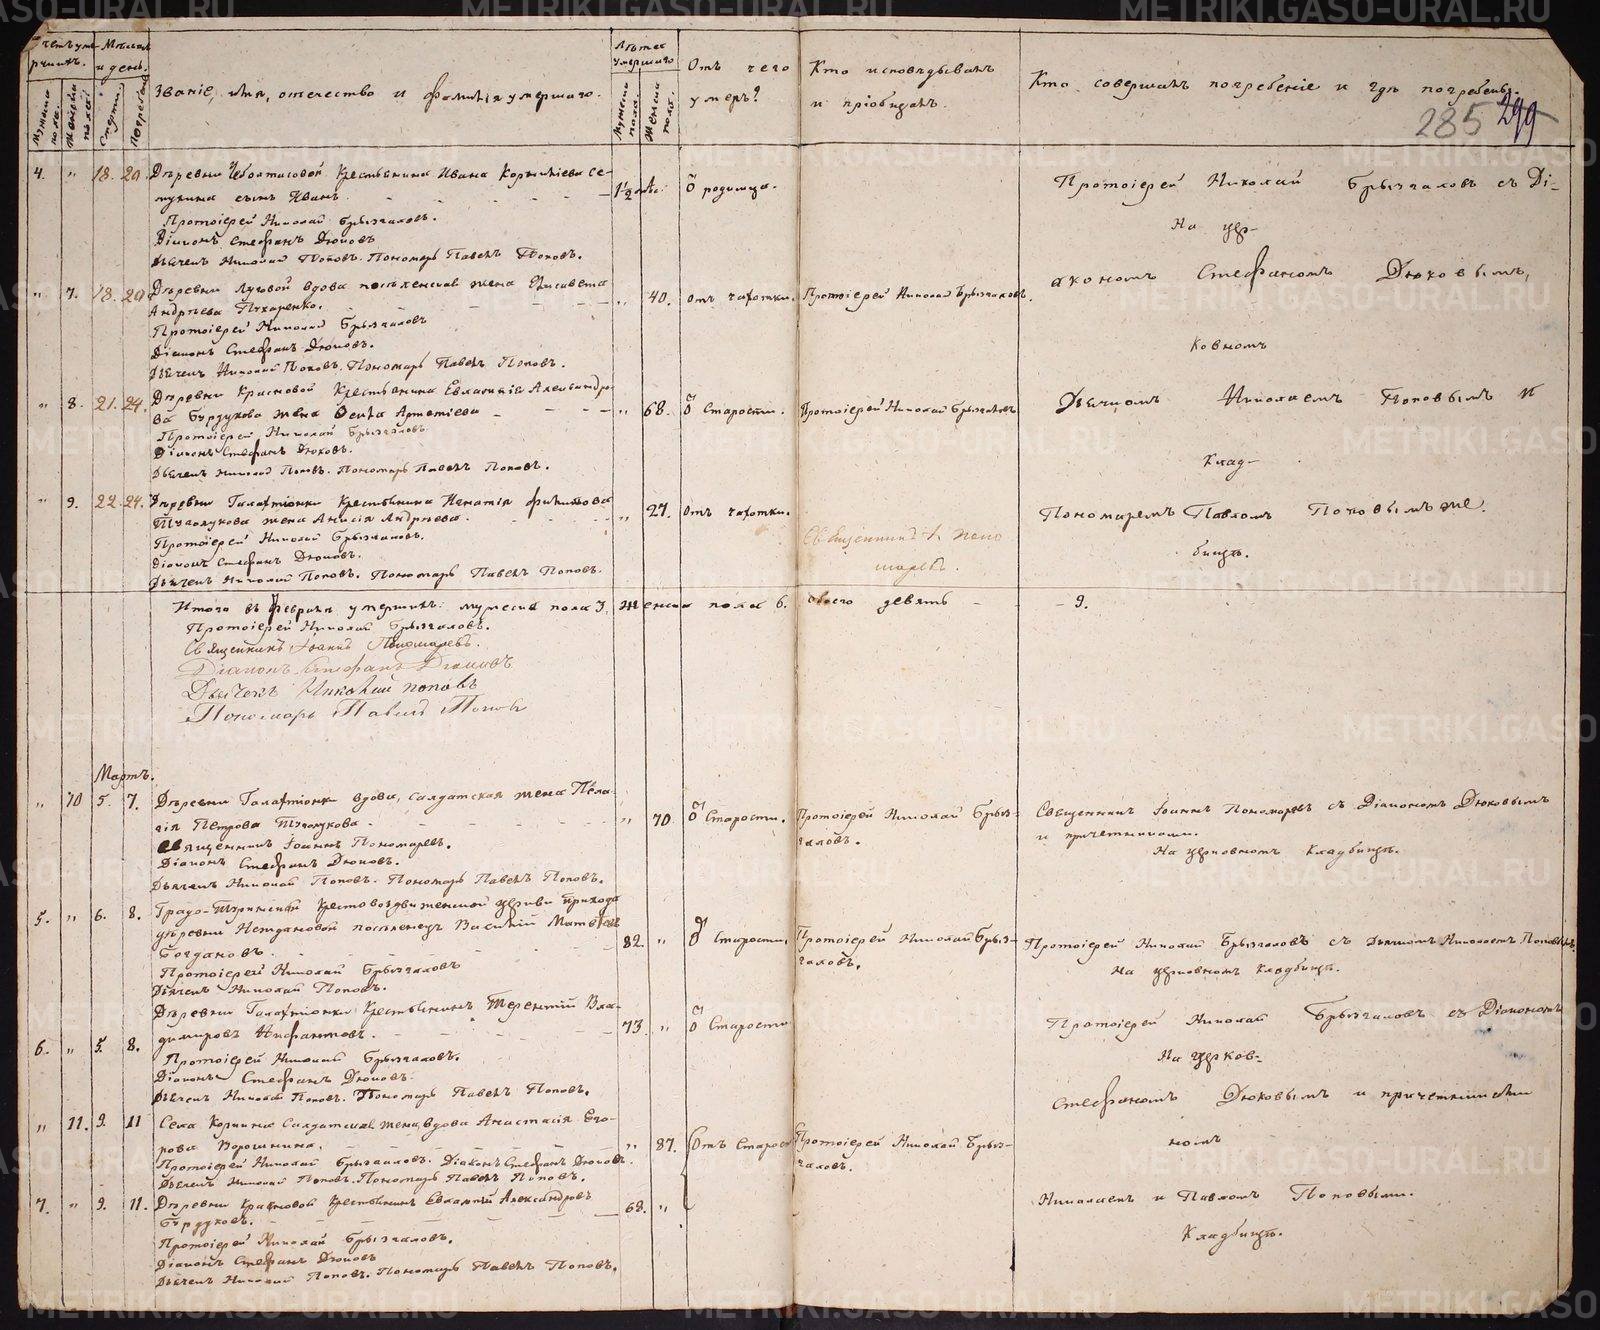 Счетъ умершихъ.
Мѣсяцъ и день.
Званіе, имя, отечество и фамилія умершаго.
Лѣта умершаго
Отъ чего умеръ?
Кто исповѣдывалъ и пріобщалъ.
Кто совершалъ погребеніе и гдѣ погребены.
285 299
Мужеска пола.
Женска пола.
Смерти.
Погребенія
Мужеска пола.
Женска пола.
4. " 18. 20. Деревни Крестьянина Ивана Корнилiева Се-
сынъ Иванъ. 1½ родимца.
Протоіерей Николай Брызгаловъ.
Діаконъ Стефанъ Дюковъ
Дьячекъ Николай Поповъ. Пономарь Павелъ Поповъ.
" 7. 18. 20 Деревни Луговой вдова поселенская жена Елисавета
Андреева " 40. отъ чахотки. Протоіерей Николай Брызгаловъ.
Протоіерей Николай Брызгаловъ
Діаконъ Стефанъ Дюковъ.
Дьячекъ Николай Поповъ. Пономарь Павелъ Поповъ.
" 8. 21. 24. Деревни Красновой Крестьянина Евлампія Александро-
ва Бурдукова жена Артемiева " 68. Старости. Протоіерей Николай Брызгаловъ
Протоіерей Николай Брызгаловъ
Діаконъ Стефанъ Дюковъ.
Дьячекъ Николай Поповъ. Пономарь Павелъ Поповъ.
" 9. 22. 24. Деревни Галактіонки Крестьянина Игнатія Филиппова
жена Анисія Андреева. " 27. Отъ чахотки.
Протоіерей Николай Брызгаловъ.
Діаконъ Стефанъ Дюковъ.
Дьячекъ Николай Поповъ. Пономарь Павелъ Поповъ.
Священникъ І. Поно
маревъ.
Протоіерей Николай Брызгаловъ съ Ді-
На цер-
акономъ Стефаномъ Дюковымъ,
ковномъ
Дьячкомъ Николаемъ Поповымъ и
Клад-
Пономаремъ Павломъ Поповымъ же.
бищѣ.
Итого въ Февралѣ умершихъ: мужеска пола 3, женска пола 6. обоего девять - - 9.
Протоіерей Николай Брызгаловъ.
Священникъ Іоаннъ Пономаревъ.
Діаконъ Стефанъ Дюковъ
Дьячекъ Николай Поповъ
Пономарь Павелъ Поповъ
Мартъ.
" 10 5. 7. Деревни Галактіонки вдова, Салдатская жена Пела-
гія Петрова " 70 Старости. Протоіерей Николай Брыз-
галовъ.
Священникъ Іоаннъ Пономаревъ.
Діаконъ Стефанъ Дюковъ.
Дьячекъ Николай Поповъ. Пономарь Павелъ Поповъ.
Священникъ Іоаннъ Пономаревъ съ Діакономъ Дюковымъ
и причетниками.
На церковномъ Кладбищѣ.
5. " 6. 8. Градо-Туринской Крестовоздвиженской церкви прихода
деревни Неждановой поселенецъ Василій Матвѣевъ
Богдановъ. 82. " Старости, Протоіерей Николай Брыз-
галовъ,
Протоіерей Николай Брызгаловъ
Дьячекъ Николай Поповъ.
Протоіерей Николай Брызгаловъ съ дьячкомъ Николаемъ Поповымъ.
На церковномъ Кладбищѣ.
6. " 5. 8. Деревни Галактіонки Крестьянинъ Терентій Вла-
димировъ 73. " Старости
Протоіерей Николай Брызгаловъ.
Діаконъ Стефанъ Дюковъ.
Дьячекъ Николай Поповъ. Пономарь Павелъ Поповъ.
" 11. 9. 11 Села Коркина Салдатская жена, вдова Анастасія Его-
рова Ворошнина. " 87. Отъ Старос Протоіерей Николай Брыз-
галовъ.
Протоіерей Николай Брызгаловъ. Діаконъ Стефанъ Дюковъ.
Дьячекъ Николай Поповъ. Пономарь Павелъ Поповъ.
7. " 9. 11. Деревни Красновой Крестьянинъ Евлампій Александровъ
Бурдуковъ. 68. "
Протоіерей Николай Брызгаловъ.
Діаконъ Стефанъ Дюковъ
Дьячекъ Николай Поповъ. Пономарь Павелъ Поповъ.
Протоіерей Николай Брызгаловъ съ Діакономъ
На церков-
Стефаномъ Дюковымъ и причетниками
номъ
Николаемъ и Павломъ Поповыми.
Кладбищѣ.
METRIKI.GASO-URAL.RU